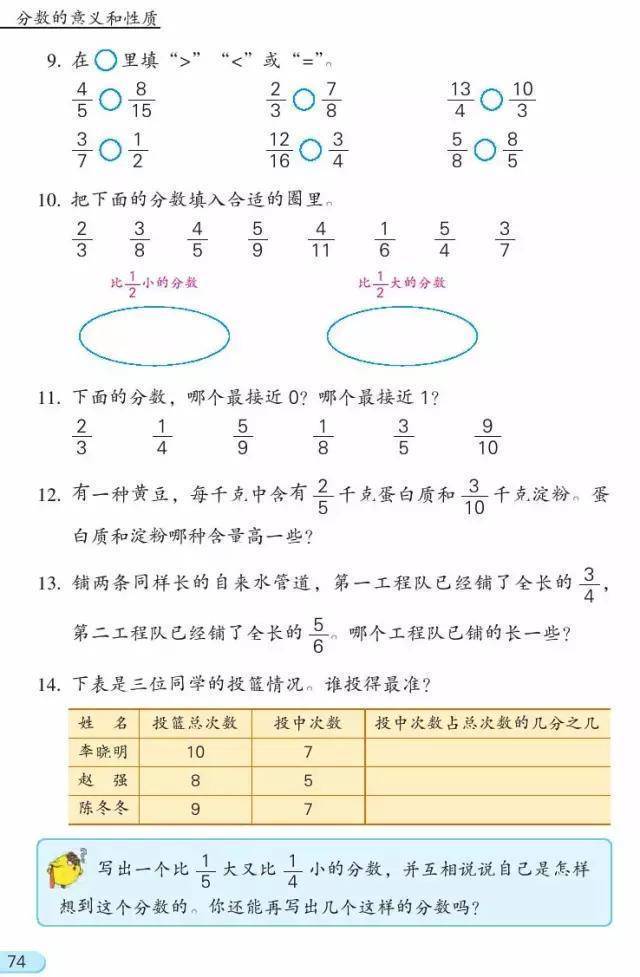 分数的意义和性质
9. 在○里填“>”“<”或“=”。
4/5 ○ 8/15 2/3 ○ 7/8 13/4 ○ 10/3
3/7 ○ 1/2 12/16 ○ 3/4 5/8 ○ 8/5
10. 把下面的分数填入合适的圈里。
2/3 3/8 4/5 5/9 4/11 1/6 5/4 3/7
比1/2小的分数 比1/2大的分数
11. 下面的分数，哪个最接近 0？哪个最接近 1？
2/3 1/4 5/9 1/8 3/5 9/10
12. 有一种黄豆，每千克中含有2/5千克蛋白质和3/10千克淀粉。蛋
白质和淀粉哪种含量高一些？
13. 铺两条同样长的自来水管道，第一工程队已经铺了全长的3/4，
第二工程队已经铺了全长的5/6。哪个工程队已铺的长一些？
14. 下表是三位同学的投篮情况。谁投得最准？
姓 名 投篮总次数 投中次数 投中次数占总次数的几分之几
李晓明 10 7
赵 强 8 5
陈冬冬 9 7
写出一个比1/5大又比1/4小的分数，并互相说说自己是怎样
想到这个分数的。你还能再写出几个这样的分数吗？
74